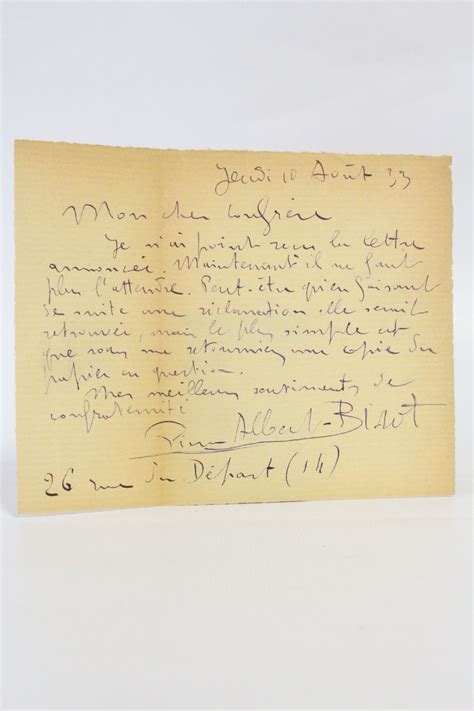 Jeudi 10 Août 33
Mon cher confrère
Je n'ai point reçu la lettre
annoncée. Maintenant il ne faut
plus l'attendre. Peut-être qu'en faisant
de suite une réclamation elle serait
retrouvée, mais le plus simple est
que vous me retourniez une copie du
papier en question.
Mes meilleurs sentiments de
confraternité
Pierre Albert-Birot
26 rue du Départ (14)